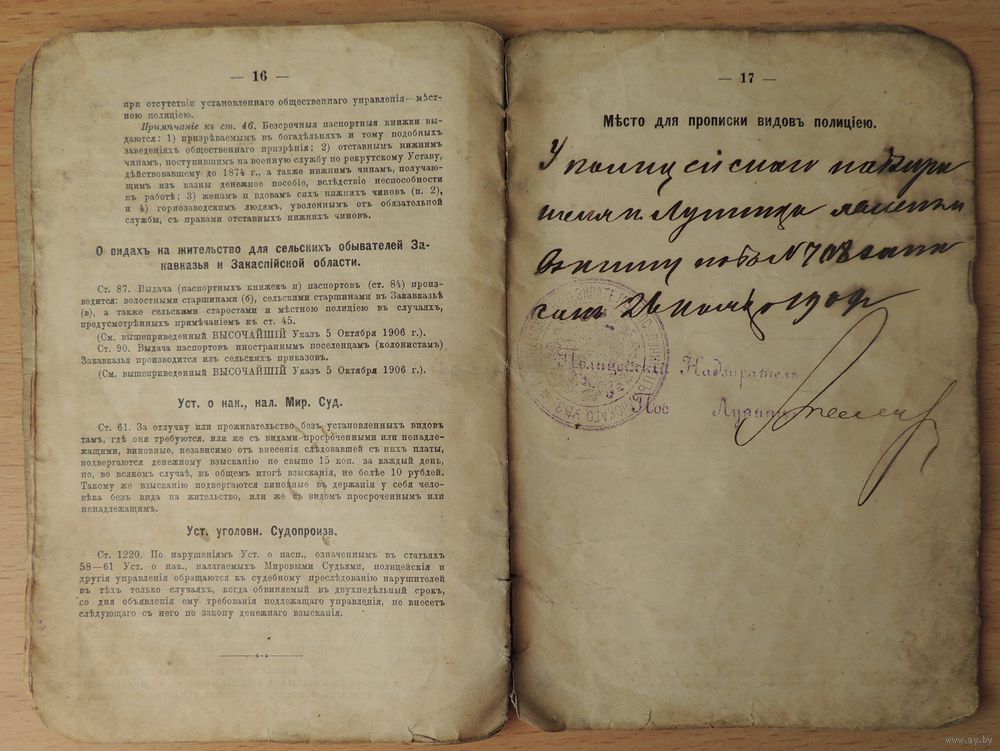 — 16 —
при отсутствіи установленнаго общественнаго управленія—мѣст-
ною полиціею.
Примѣчаніе къ ст. 46. Безсрочныя паспортныя книжки вы-
даются: 1) призрѣваемымъ въ богадѣльняхъ и тому подобныхъ
заведеніяхъ общественнаго призрѣнія; 2) отставнымъ нижнимъ
чинамъ, поступившимъ на военную службу по рекрутскому Уставу,
дѣйствовавшему до 1874 г., а также нижнимъ чинамъ, получаю-
щимъ изъ казны денежное пособіе, вслѣдствіе неспособности
къ работѣ; 3) женамъ и вдовамъ сихъ нижнихъ чиновъ (п. 2),
и 4) горнозаводскимъ людямъ, уволеннымъ отъ обязательной
службы, съ правами отставныхъ нижнихъ чиновъ.
О видахъ на жительство для сельскихъ обывателей За-
кавказья и Закаспійской области.
Ст. 87. Выдача (паспортныхъ книжекъ и) паспортовъ (ст. 84) произ-
водится: волостными старшинами (б), сельскими старшинами въ Закавказьѣ
(в), а также сельскими старостами и мѣстною полиціею въ случаяхъ,
предусмотрѣнныхъ примѣчаніемъ къ ст. 45.
(См. вышеприведенный ВЫСОЧАЙШІЙ Указъ 5 Октября 1906 г.).
Ст. 90. Выдача паспортовъ иностраннымъ поселенцамъ (колонистамъ)
Закавказья производится изъ сельскихъ приказовъ.
(См. вышеприведенный ВЫСОЧАЙШІЙ Указъ 5 Октября 1906 г.).
Уст. о нак., нал. Мир. Суд.
Ст. 61. За отлучку или проживательство безъ установленныхъ видовъ
тамъ, гдѣ они требуются, или же съ видами просроченными или ненадле-
жащими, виновные, независимо отъ внесенія слѣдовавшей съ нихъ платы,
подвергаются денежному взысканію не свыше 15 коп. за каждый день,
но, во всякомъ случаѣ, въ общемъ итогѣ взысканія, не болѣе 10 рублей.
Такому же взысканію подвергаются виновные въ держаніи у себя чело-
вѣка безъ вида на жительство, или же съ видомъ просроченнымъ или
ненадлежащимъ.
Уст. уголовн. Судопроизв.
Ст. 1220. По нарушеніямъ Уст. о пасп., означеннымъ въ статьяхъ
58—61 Уст. о нак., налагаемыхъ Мировыми Судьями, полицейскія и
другія управленія обращаются къ судебному преслѣдованію нарушителей
въ тѣхъ только случаяхъ, когда обвиняемый въ двухнедѣльный срокъ,
со дня объявленія ему требованія подлежащаго управленія, не внесетъ
слѣдующаго съ него по закону денежнаго взысканія.
— 17 —
Мѣсто для прописки видовъ полиціею.
У полицейскаго надзира
теля Лунинца явленъ
въ книгу № 708 запи
санъ 26 1909
Полицейскій Надзиратель
Пос Лунин
www.ay.by